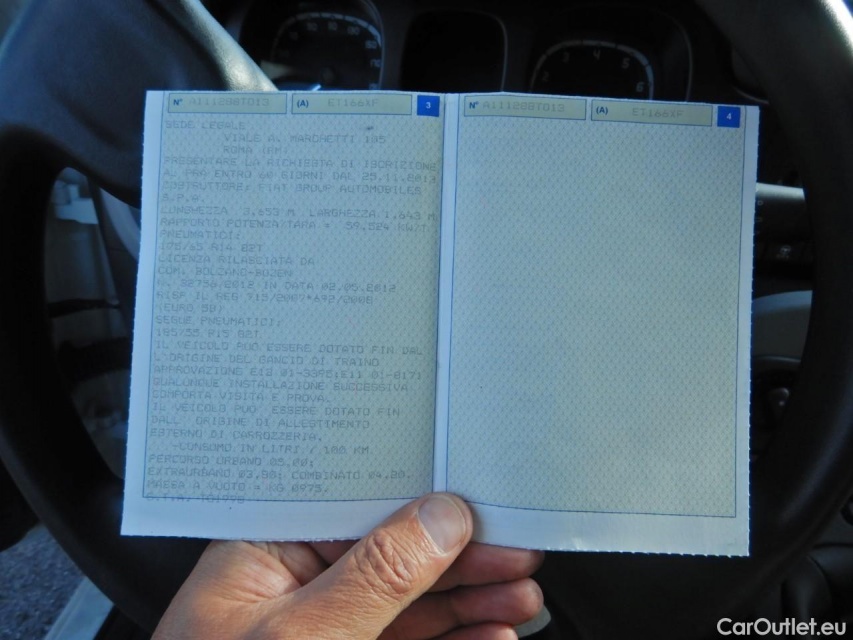 N° A111288T013 (A) ET166XF 3
SEDE LEGALE
VIALE A. MARCHETTI 105
ROMA (RM)
PRESENTARE LA RICHIESTA DI ISCRIZIONE
AL PRA ENTRO 60 GIORNI DAL 25.11.2013
COSTRUTTORE: FIAT GROUP AUTOMOBILES
S.P.A.
LUNGHEZZA 3,653 M LARGHEZZA 1,643 M
RAPPORTO POTENZA/TARA = 59,524 KW/T
PNEUMATICI:
175/65 R14 82T
LICENZA RILASCIATA DA
COM. BOLZANO-BOZEN
N. 32756/2012 IN DATA 02.05.2012
RISP IL REG 715/2007*692/2008
(EURO 5B)
SEGUE PNEUMATICI:
185/55 R15 82T
IL VEICOLO PUO' ESSERE DOTATO FIN DAL
L'ORIGINE DEL GANCIO DI TRAINO
APPROVAZIONE E13 01-3390;E11 01-8171
QUALUNQUE INSTALLAZIONE SUCCESSIVA
COMPORTA VISITA E PROVA.
IL VEICOLO PUO' ESSERE DOTATO FIN
DALL' ORIGINE DI ALLESTIMENTO
ESTERNO DI CARROZZERIA.
-CONSUMO IN LITRI / 100 KM
PERCORSO URBANO 05.00;
EXTRAURBANO 03.80; COMBINATO 04.20.
MASSA A VUOTO = KG 0975.
N° A111288T013 (A) ET166XF 4
CarOutlet.eu